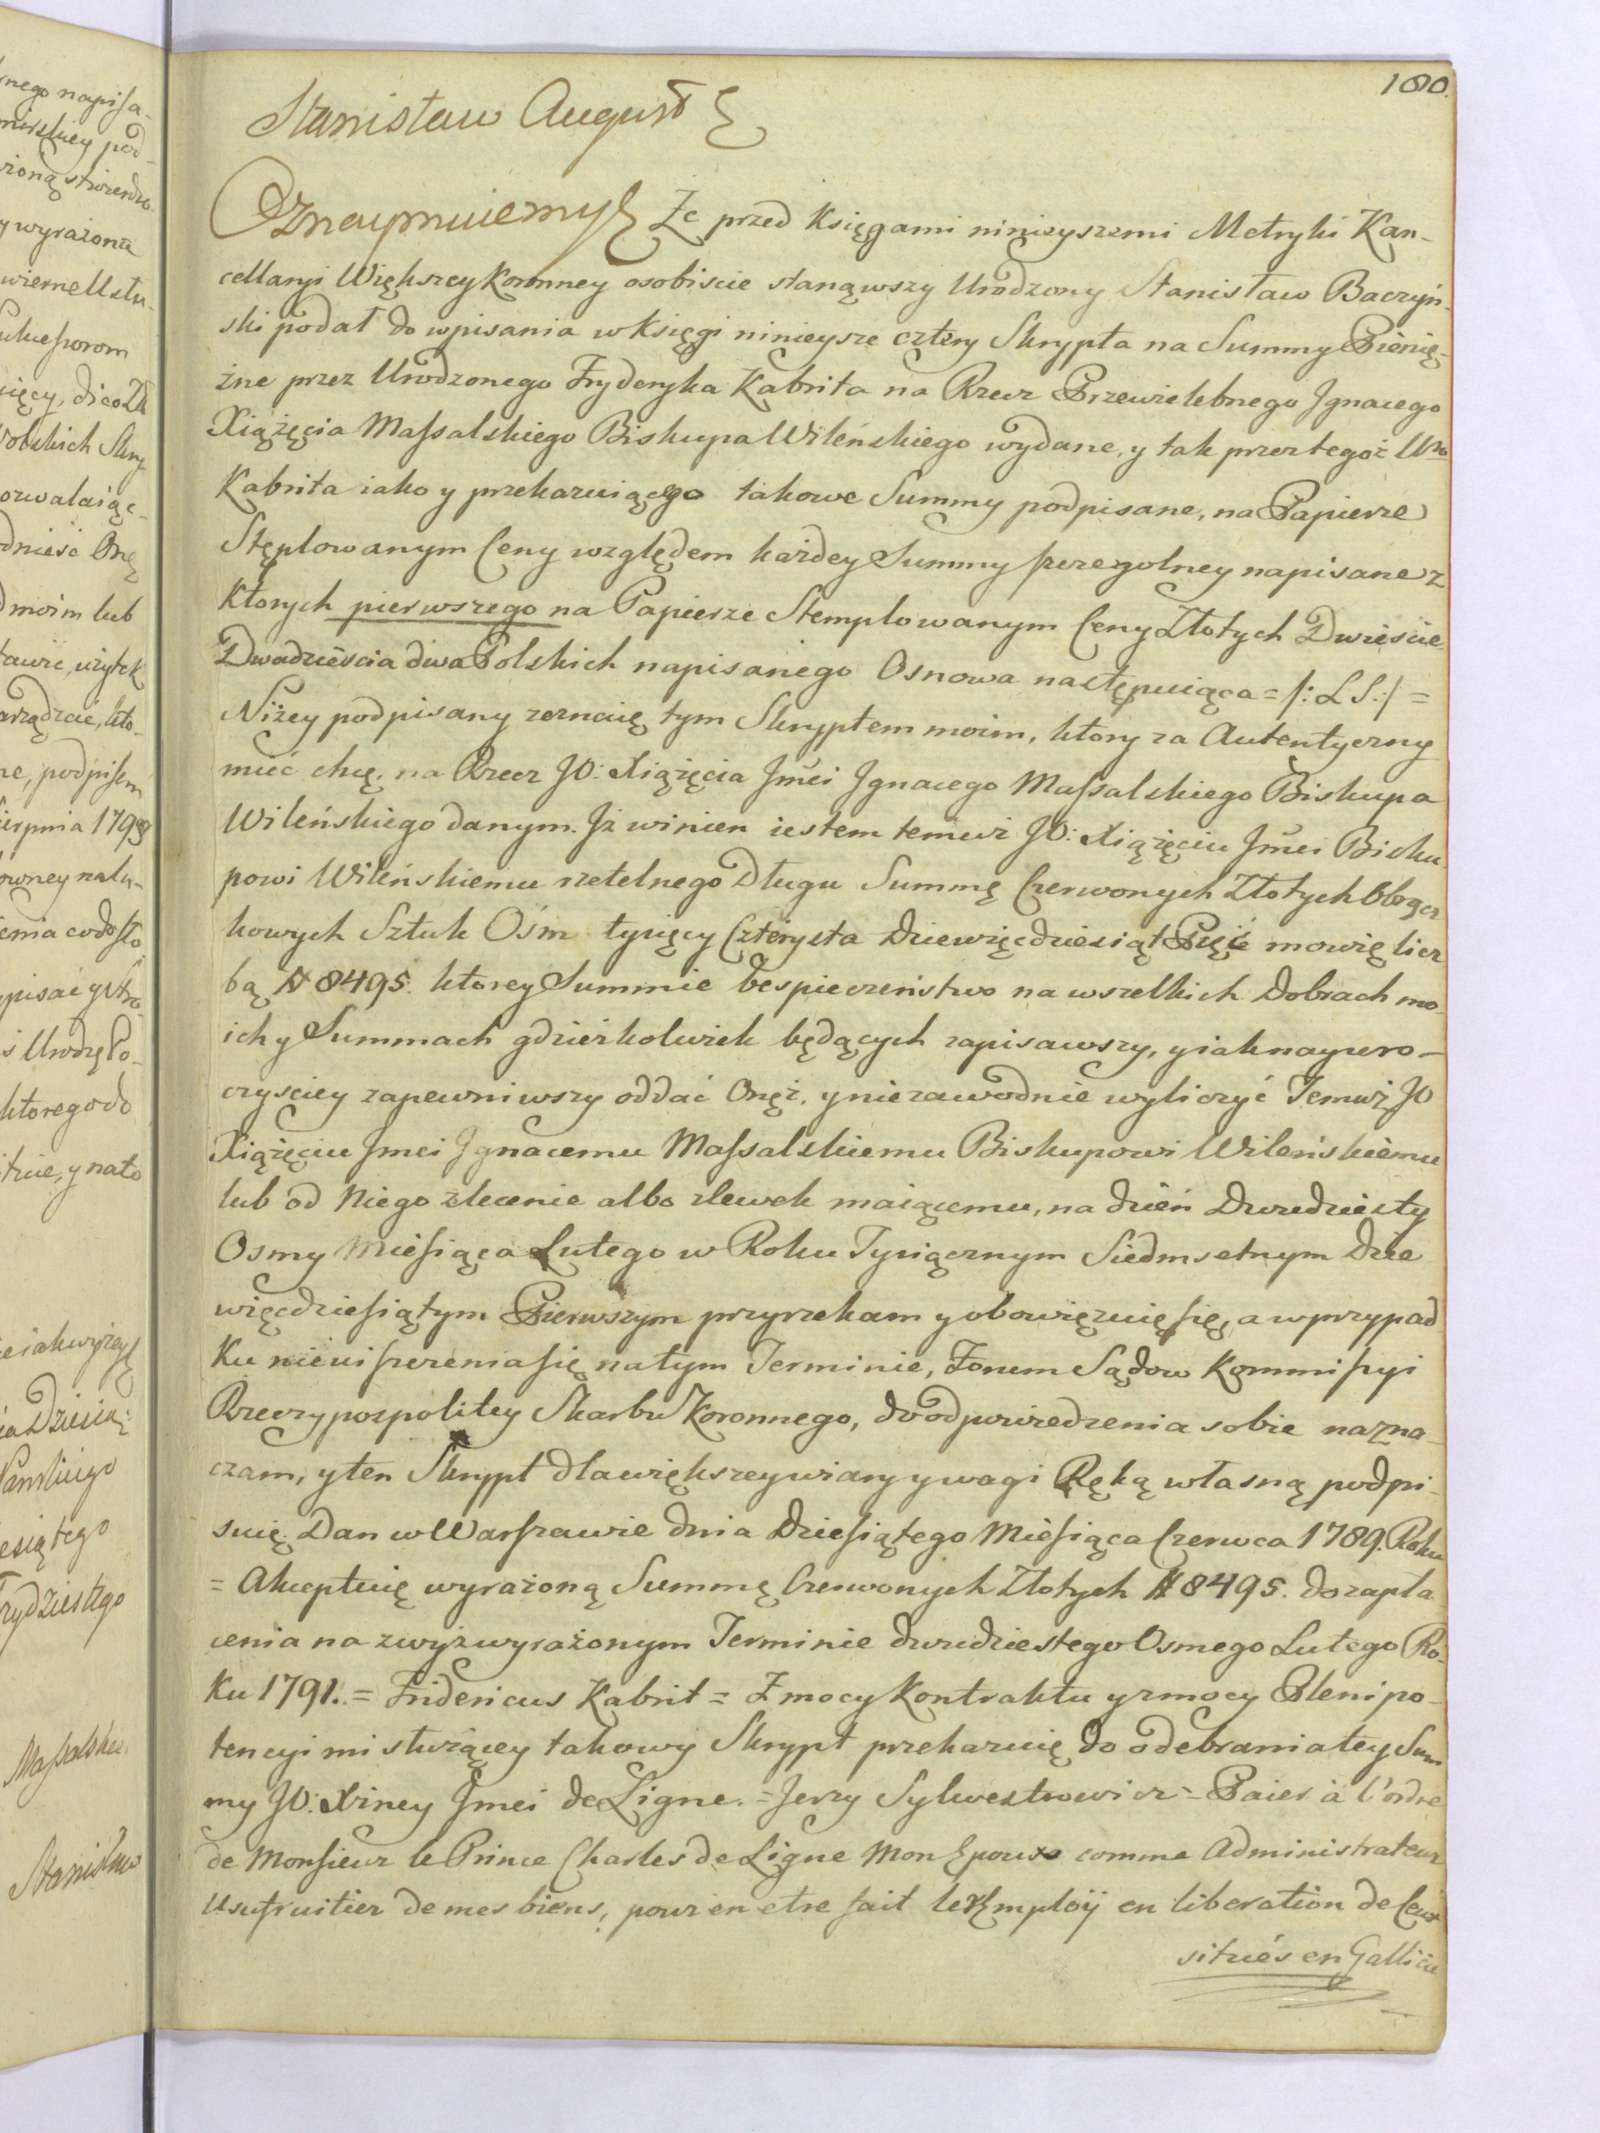 180.
Stanisław August
Oznaymuiemy Że przed Księgami ninieyszemi Metryki Kan-
cellaryi Większey Koronney osobiscie stanąwszy Urodzony Stanisław Baczyń-
ski podał do wpisania w księgi ninieysze cztery Skrypta na Summy Pienię-
żne przez Urodzonego Fryderyka Kabryta na Rzecz Przewielebnego Jgnacego
Xiążęcia Massalskiego Biskupa Wileńskiego wydane, y tak przez tegoż Uro
Kabrita iako y przekazuiącego takowe Summy podpisane, na Papierze
Stęplowanym Ceny względem każdey Summy szczegolney napisane z
Ktorych pierwszego na Papierze Stemplowanym Ceny Złotych Dwieście
Dwadzieścia dwa Polskich napisanego Osnowa następuiąca = /: L S :/ =
Niżey podpisany zeznaię tym Skryptem moim, ktory za Autentyczny
mieć chcę, na Rzecz JO: Xiążęcia Jmci Jgnacego Massalskiego Biskupa
Wileńskiego danym. Jż winien iestem temuż JO: Xiążęciu Jmci Bisku
powi Wileńskiemu rzetelnego Długu Summę Czerwonych Złotych Obrącz
kowych Sztuk Ośm tysięcy Czterysta Dziewięcdziesiąt Pięć mowię licz
bą # 8495. ktorey Summie bespieczeństwo na wszelkich Dobrach mo
ich y Summach gdzieżkolwiek będących zapisawszy, y iak nayuro-
czyściey zapewniwszy oddać Onęż, y niezawodnie wyliczyć Temuż JO
Xiążęciu Jmci Jgnacemu Massalskiemu Biskupowi Wileńskiemu
lub od Niego zlecenie albo zlewek maiącemu, na dzień Dwudziesty
Osmy Miesiąca Lutego w Roku Tysiącznym Siedmsetnym Dzie
więcdziesiątym Pierwszym przyrzekam y obowięzuię się, a w przypad
Ku nieuiszczenia się na tym Terminie, Forum Sądow Kommissyi
Rzeczypospolitey Skarbu Koronnego, do odpowiedzenia sobie nazna-
czam, y ten Skrypt dla większey wiary y wagi Ręką własną podpi-
suię. Dan w Warszawie dnia Dziesiątego Miesiąca Czerwca 1789. Roku
= Akceptuię wyrażoną Summę Czerwonych Złotych # 8495. do zapła
cenia na zwyż wyrażonym Terminie dwudziestego Osmego Lutego Ro-
Ku 1791. = Fridericus Kabrit = Z mocy Kontraktu y z mocy Plenipo-
tencyi mi służącey takowy Skrypt przekazuię do odebrania tey Sum
my JO: Xiney Jmci de Ligne. = Jerzy Sylwestrowicz = Paier à l'ordre
de Monsieur le Prince Charles de Ligne Mon Epoux comme Administrateur
Usufruitier de mes biens, pour en etre fait le Remploÿ en liberation de Ceux
situés en Gallicie